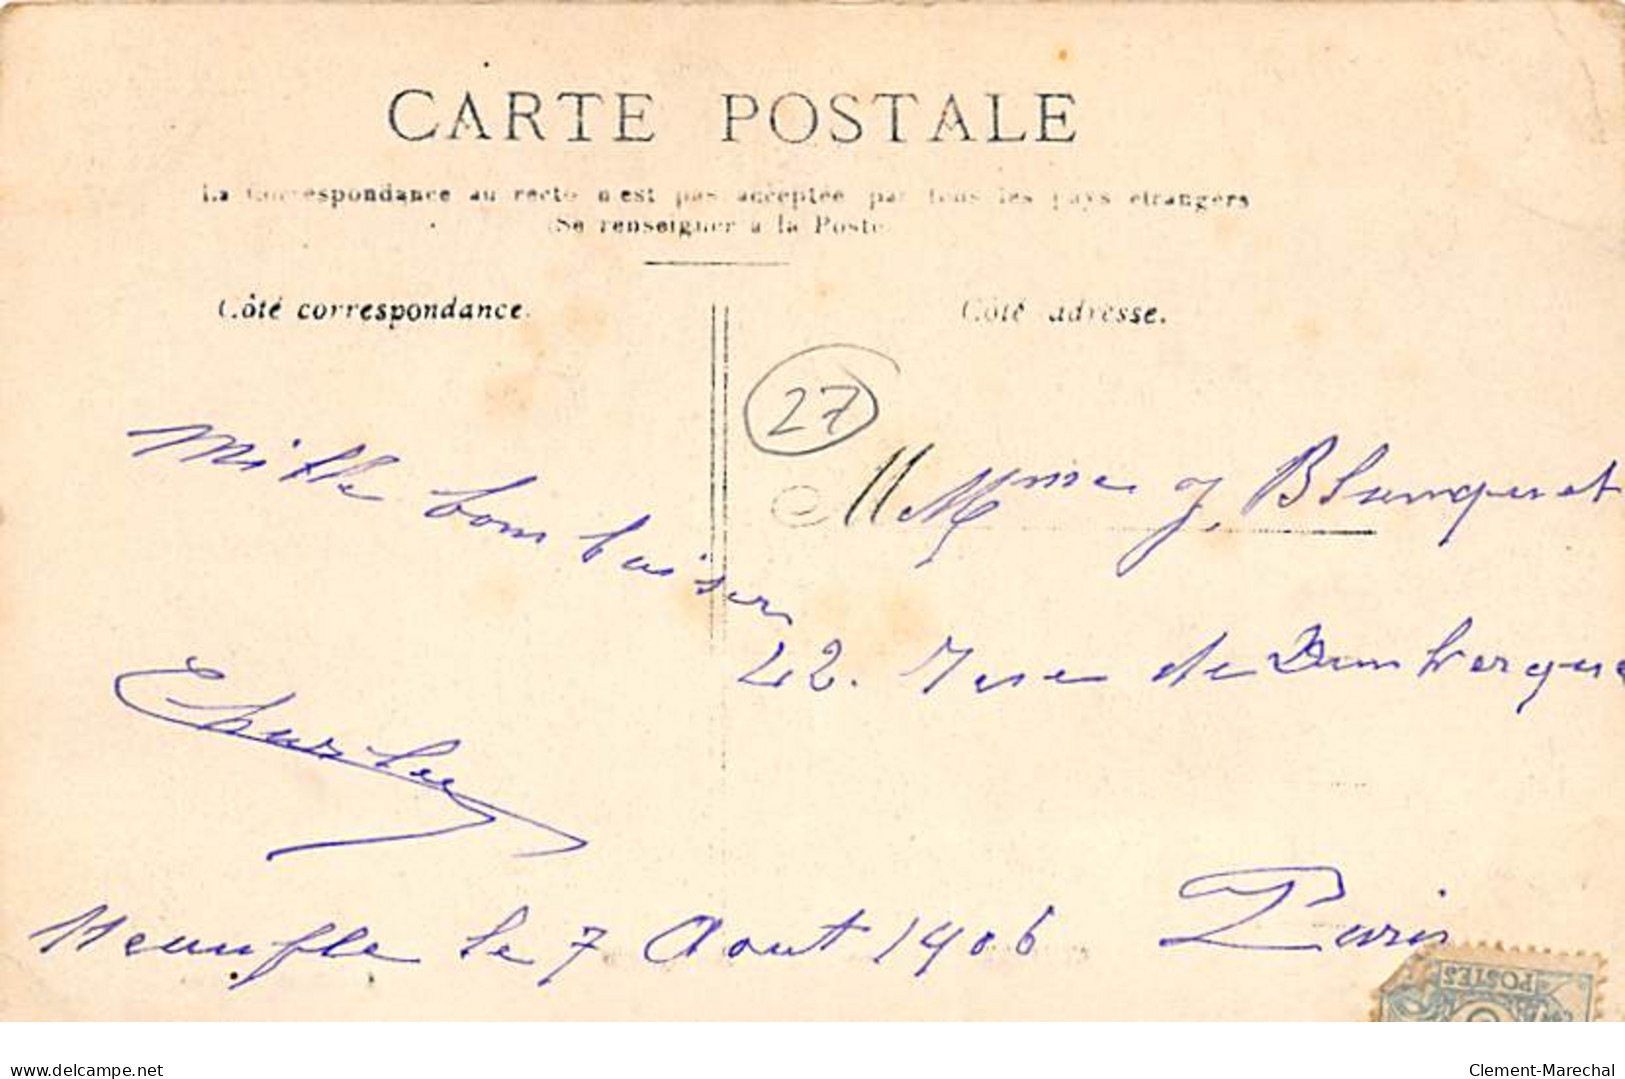 CARTE POSTALE
La Correspondance au recto n'est pas acceptée par tous les pays étrangers
(Se renseigner à la Poste
Côté correspondance.
Côté adresse.
27
Mille bons baisers
Charles
Neaufle le 7 Aout 1906
Mme J. Blanquet
42. Rue de Dunkerque
Paris
POSTES
delcampe.net
Clement-Marechal